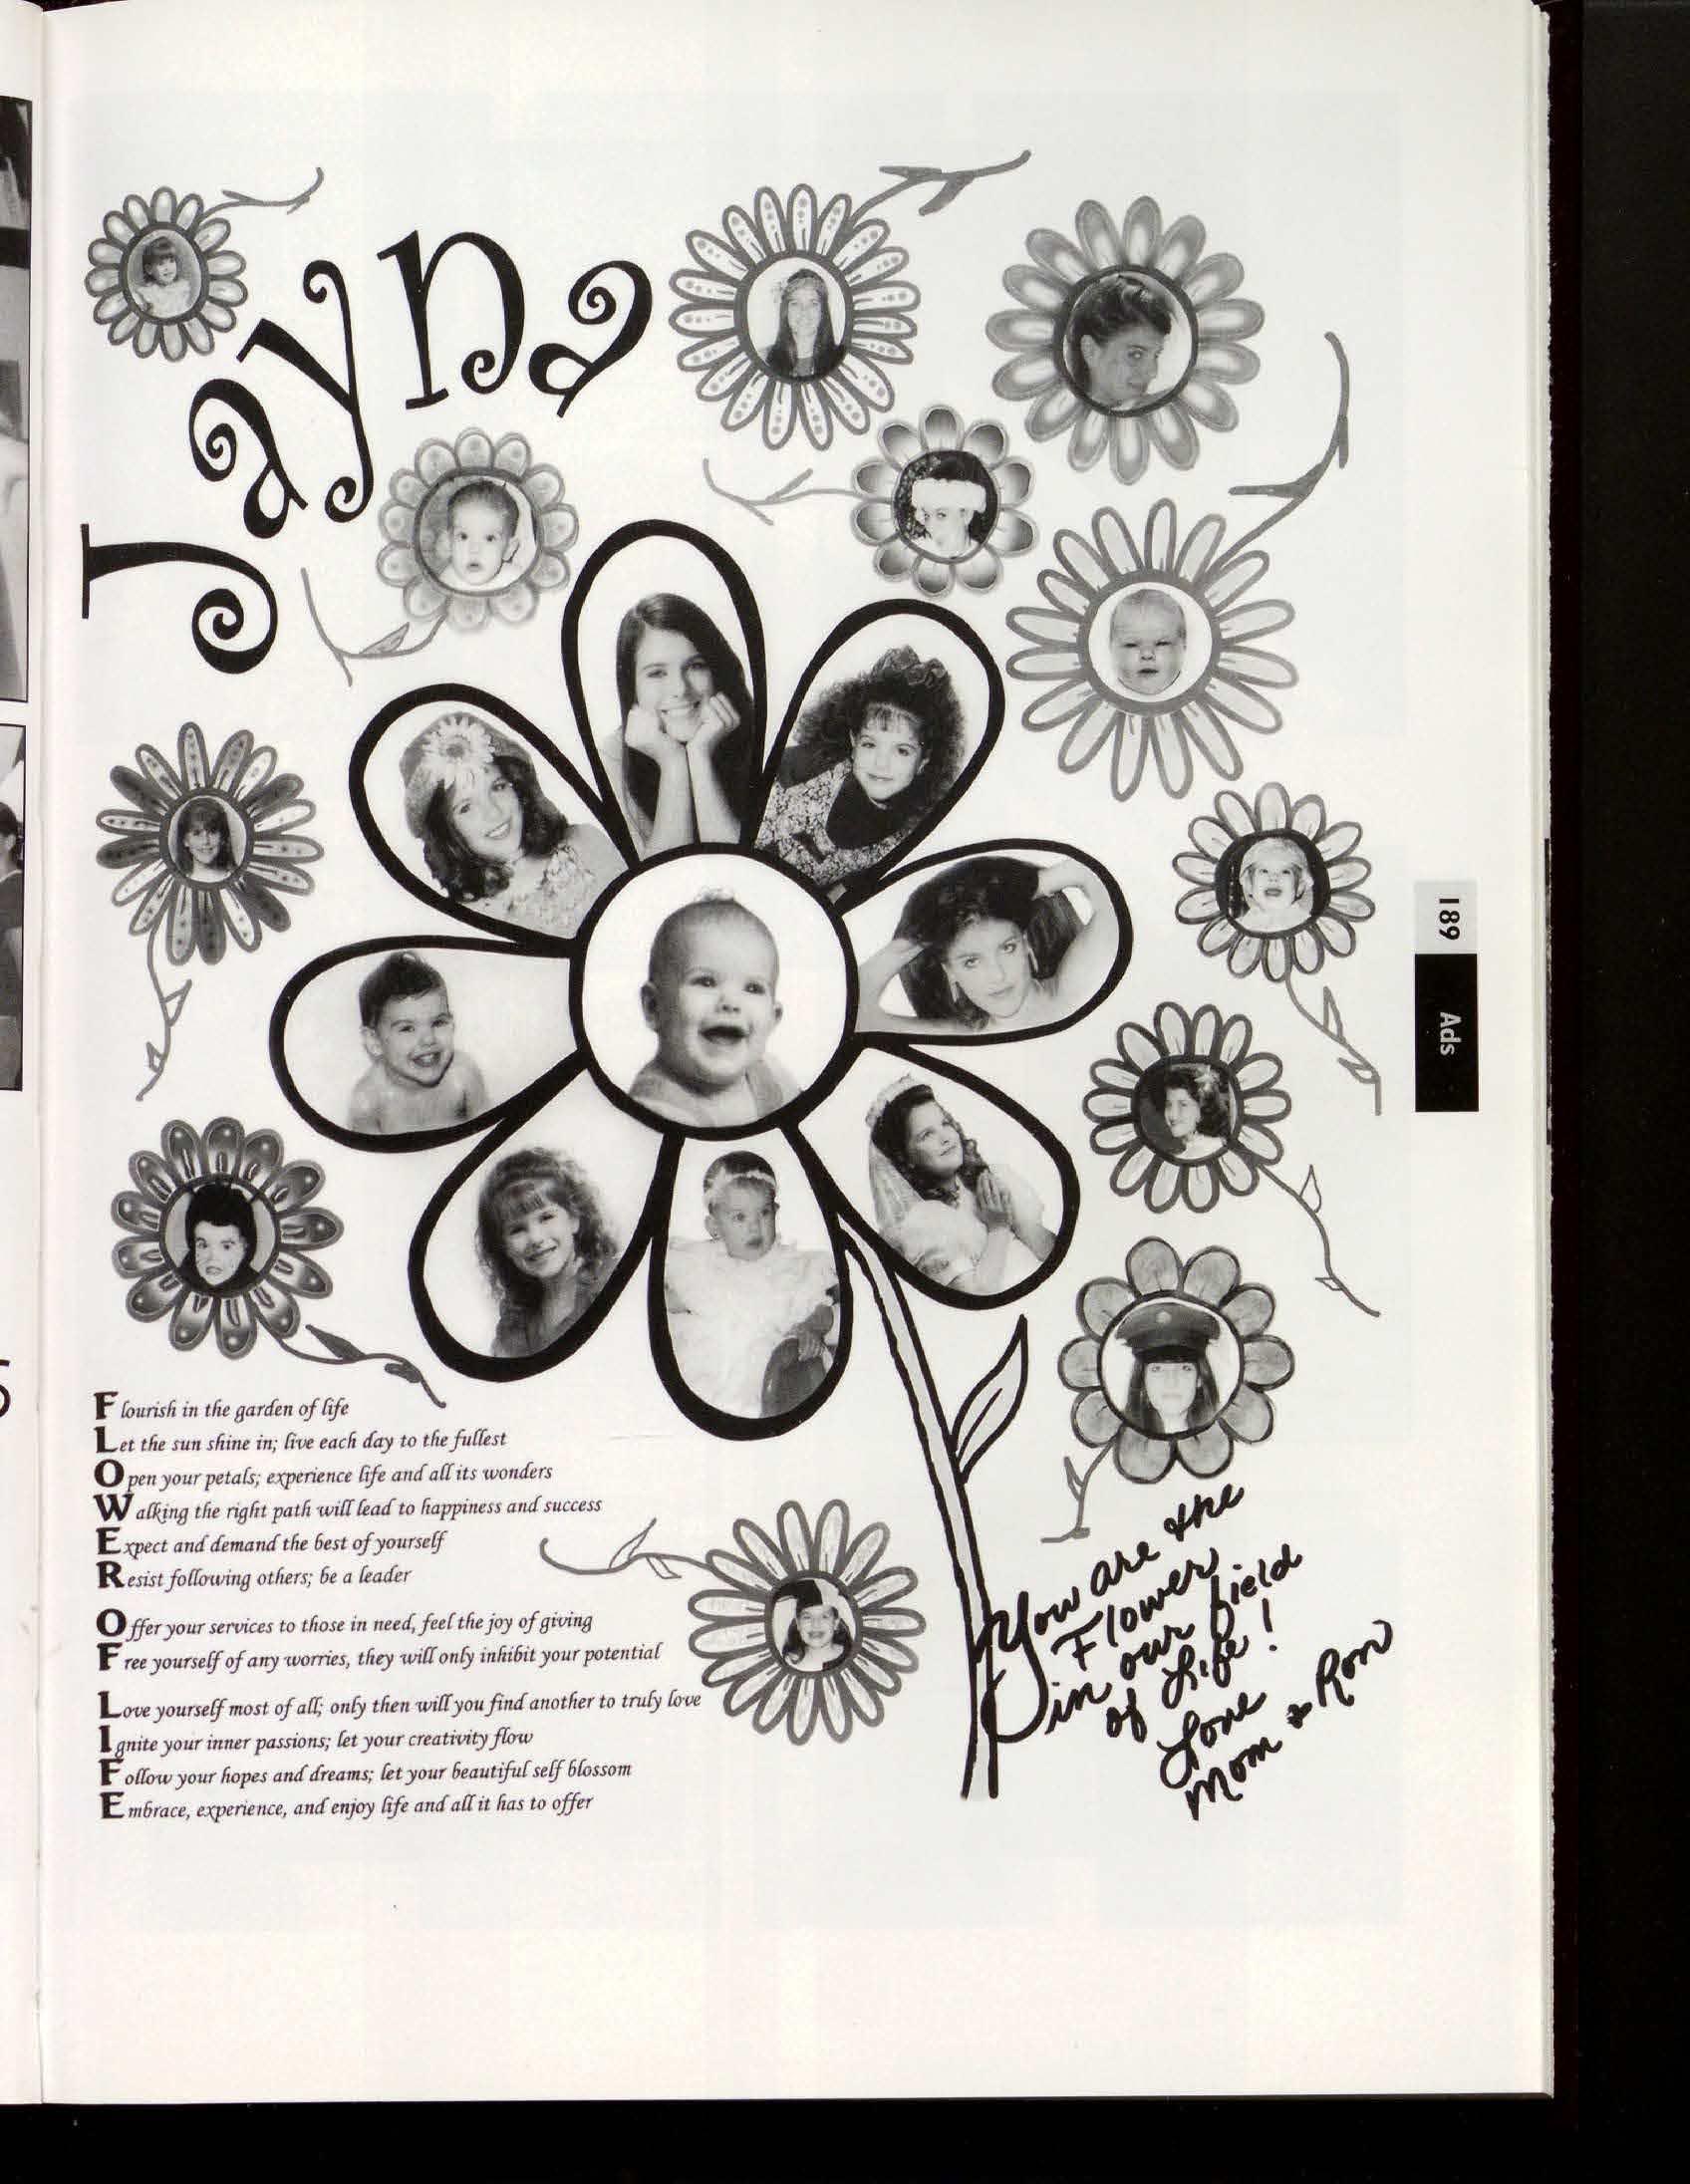 Jayna
Flourish in the garden of life
Let the sun shine in; live each day to the fullest
Open your petals; experience life and all its wonders
Walking the right path will lead to happiness and success
Expect and demand the best of yourself
Resist following others; be a leader
Offer your services to those in need, feel the joy of giving
Free yourself of any worries, they will only inhibit your potential
Love yourself most of all; only then will you find another to truly love
Ignite your inner passions; let your creativity flow
Follow your hopes and dreams; let your beautiful self blossom
Embrace, experience, and enjoy life and all it has to offer
You are the
Flower
in our field
of Life!
Love
Mom & Ron
189
Ads